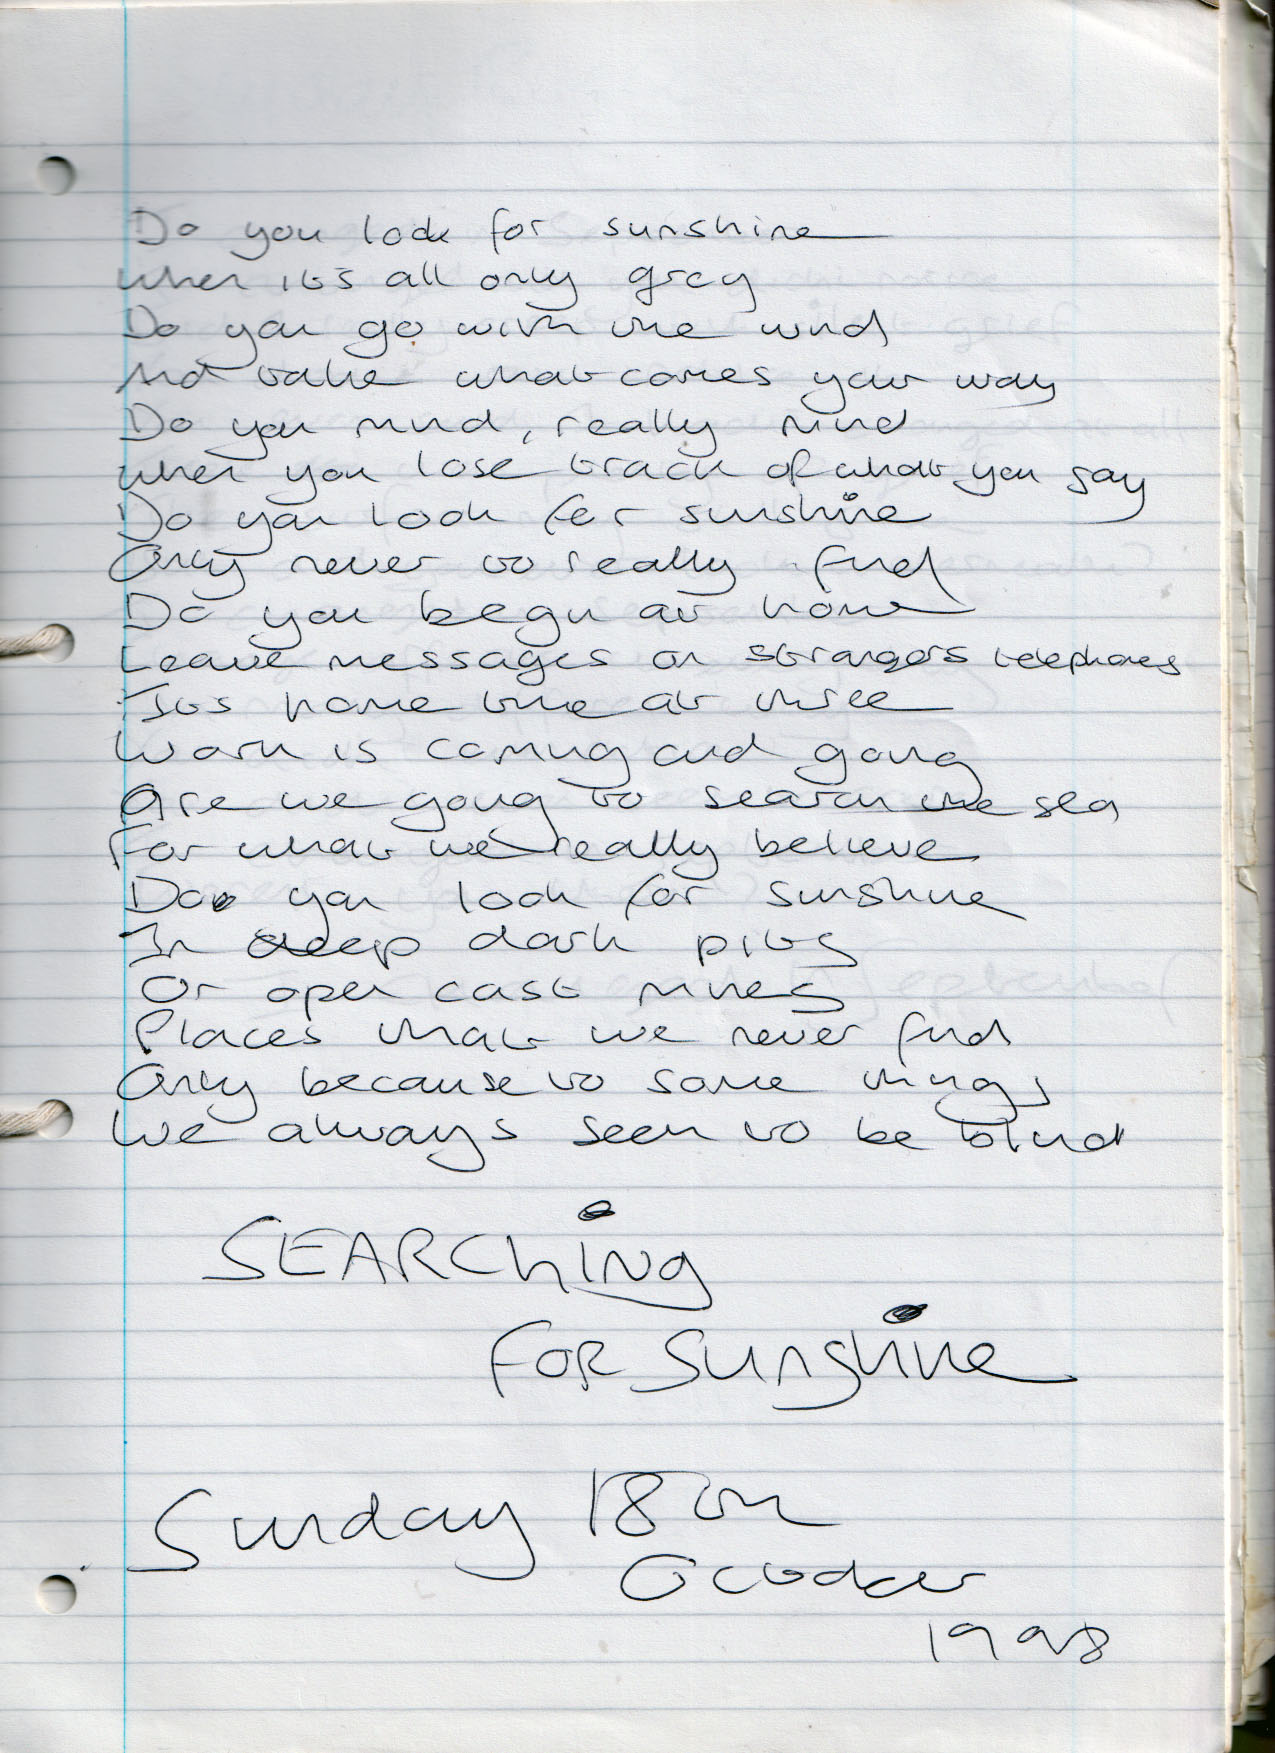 Do you look for sunshine
when it's all only grey
Do you go with the wind
And take what comes your way
Do you mind, really mind
when you lose track of what you say
Do you look for sunshine
Only never to really find
Do you begin at home
Leave messages on strangers telephones
It's home time at three
Work is coming and going
Are we going to search the sea
For what we really believe
Do you look for sunshine
In deep dark pits
Or open cast mines
Places that we never find
Only because to some things
We always seem to be blind
SEARChiNg
FOR Sunshine
Sunday 18th
October
1998